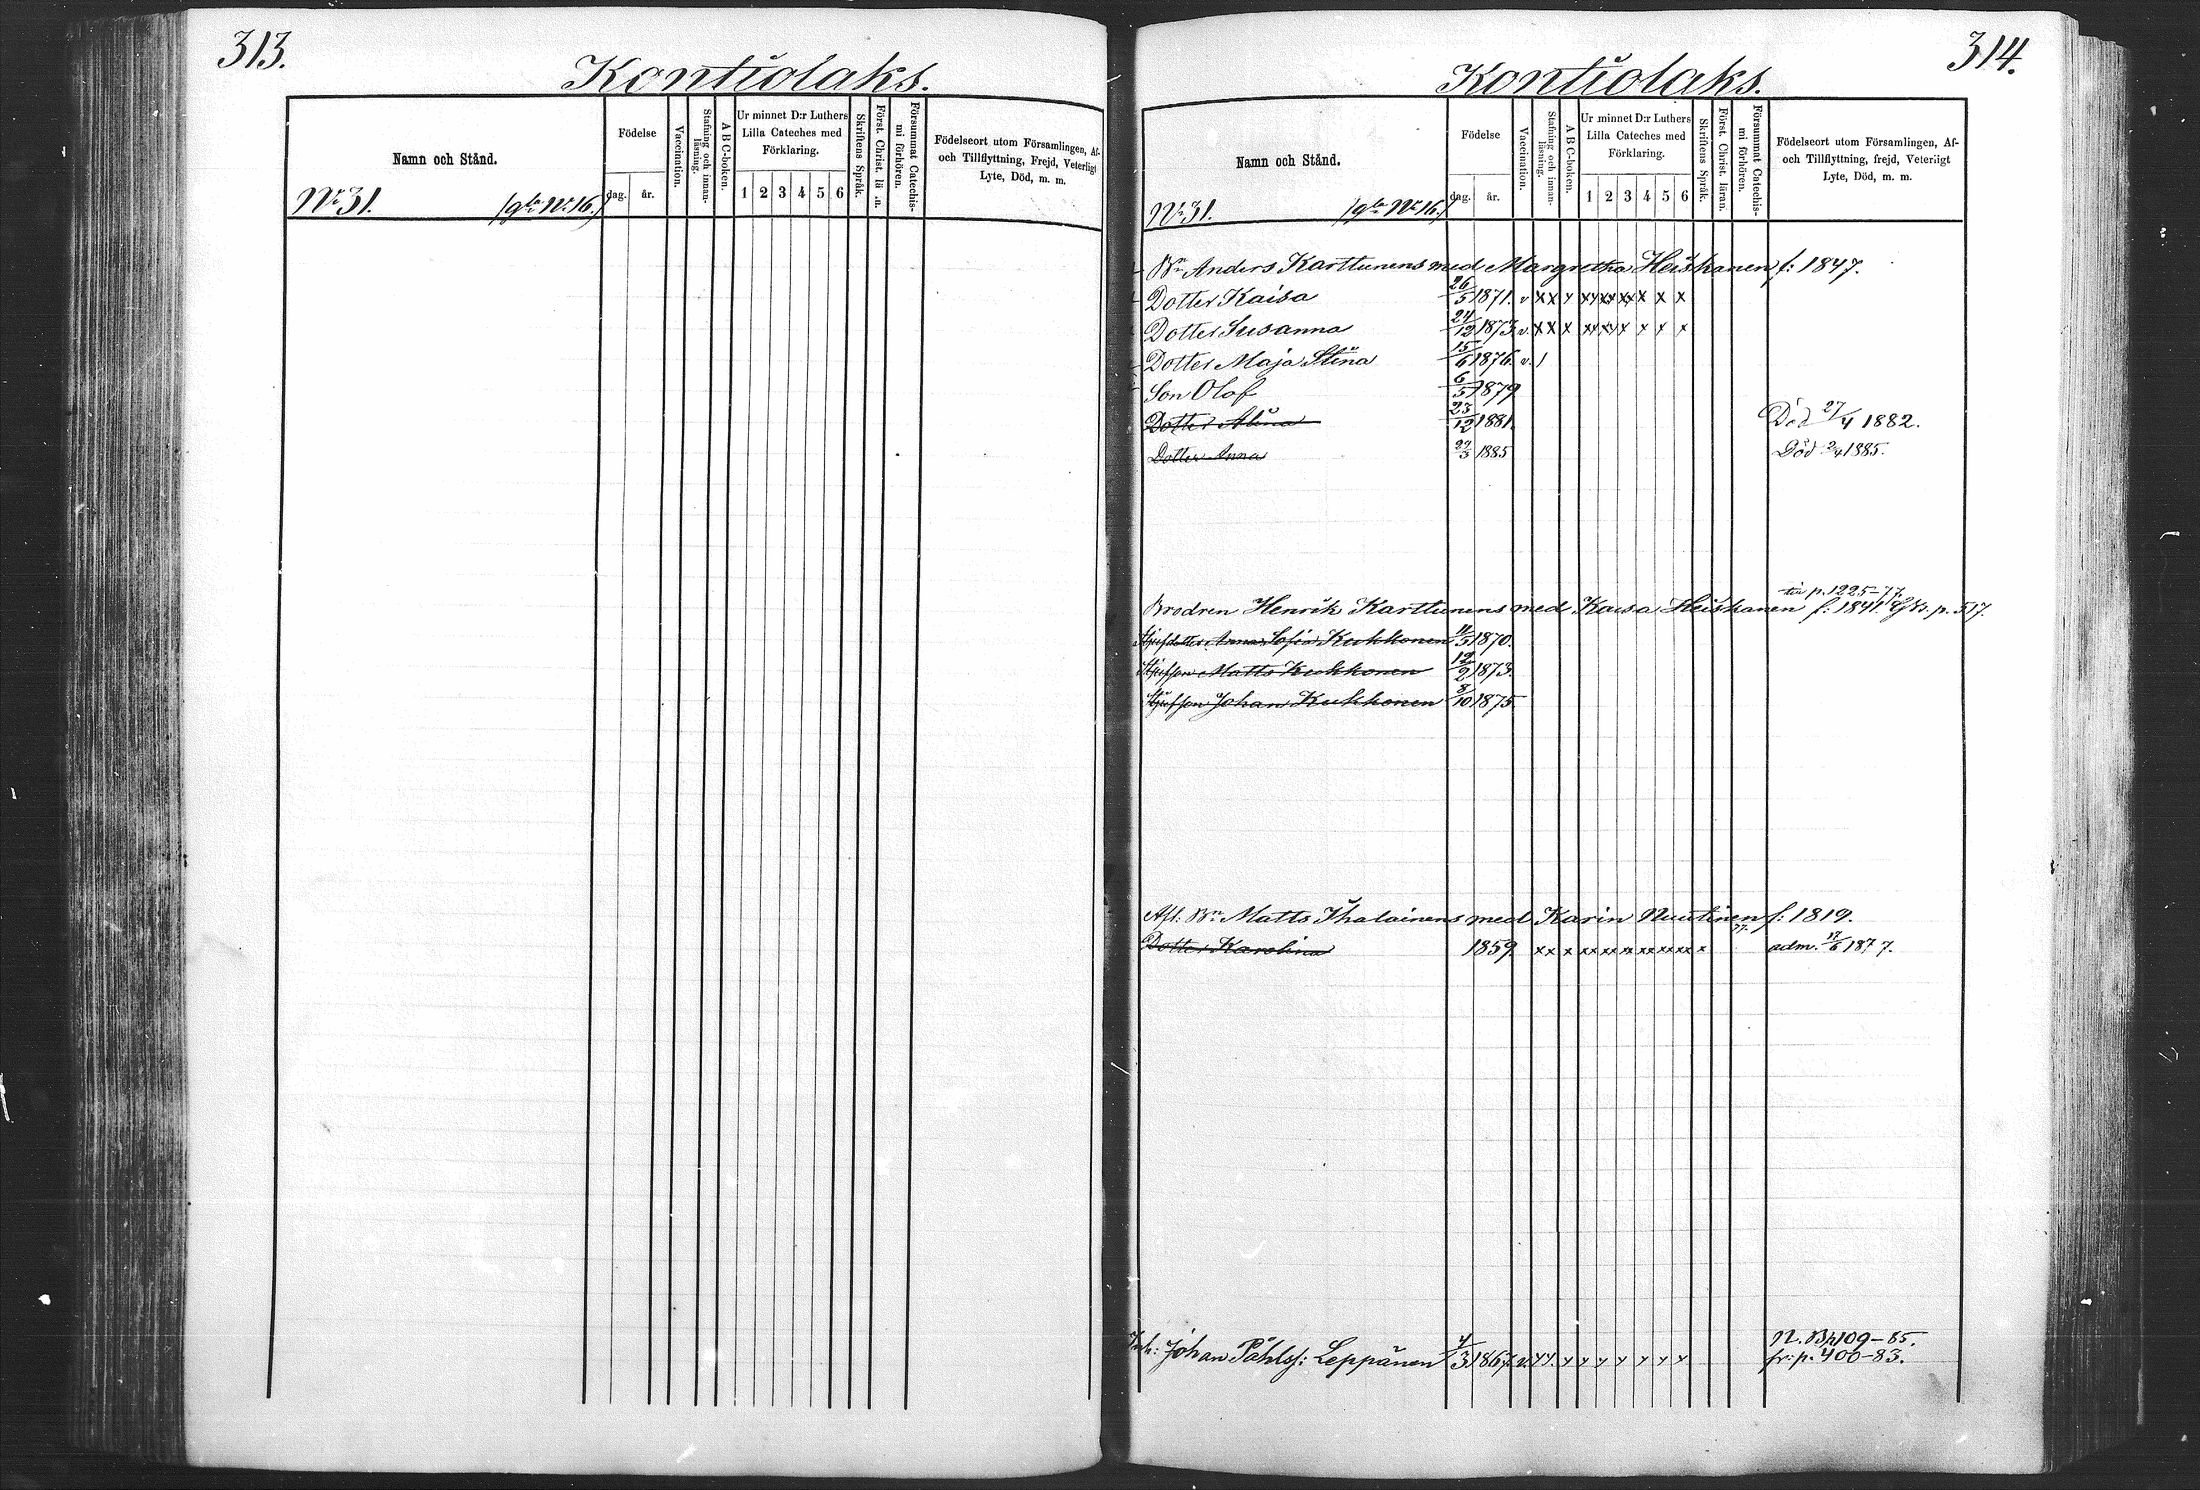 313.
Kontiolaks.
Namn och Stånd.
Födelse
dag.
år.
Vaccination.
Stafning och innan-
läsning.
A B C-boken.
Ur minnet D:r Luthers
Lilla Cateches med
Förklaring.
1 2 3 4 5 6
Skriftens Språk.
Först. Christ. lä .n.
Försummat Catechis-
mi förhören.
Födelseort utom Församlingen, Af-
och Tillflyttning, Frejd, Veterligt
Lyte, Död, m. m.
Nr 31. /gla Nr 16./
314.
Kontiolaks.
Namn och Stånd.
Födelse
dag.
år.
Vaccination.
Stafning och innan-
läsning.
A B C-boken.
Ur minnet D:r Luthers
Lilla Cateches med
Förklaring.
1 2 3 4 5 6
Skriftens Språk.
Först. Christ. läran.
Försummat Catechis-
mi förhören.
Födelseort utom Församlingen, Af-
och Tillflyttning, frejd, Veterligt
Lyte, Död, m. m.
Nr 31. /gla Nr 16./
Bn Anders Karttunens med Margretha Heiskanen f: 1847.
Dotter Kaisa 26/5 1871. v x x x xx xx xx x x x
Dotter Susanna 24/12 1873 v. x x x xx xx x x x x
Dotter Maja Stina 15/6 1876. v. /
Son Olof 6/5 1879
Dotter Alina 23/12 1881. Död 27/4 1882.
Dotter Anna 29/3 1885 Död 2/4 1885.
p. 1225-77.
Brodren Henrik Karttunens med Kaisa Heiskanen f: 1841. p. 517.
Stjufdotter Anna Sofia Kukkonen 11/5 1870.
Stjufson Matts Kukkonen 12/2 1873.
Stjufson Johan Kukkonen 8/10 1875
Afl. Bn Matts Ihalainens med Karin Nuutinen f: 1819.
77.
Dotter Karolina 1859. xx x xx xx xx xx xx xx x adm. 17/6 1877.
N. B. p. 109-85.
Inh: Johan Påhlsf: Leppänen 4/3 1867. v. x x. x x x x x x x fr: p. 400-83.